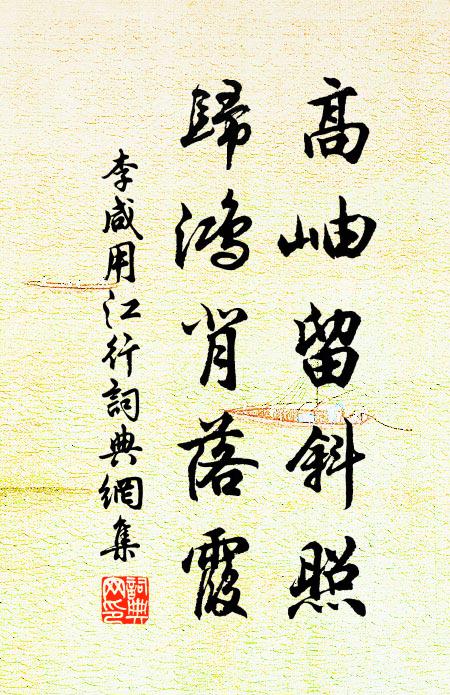 高岫留斜照
歸鴻背落霞
李咸用江行詞典網集
詞典網印